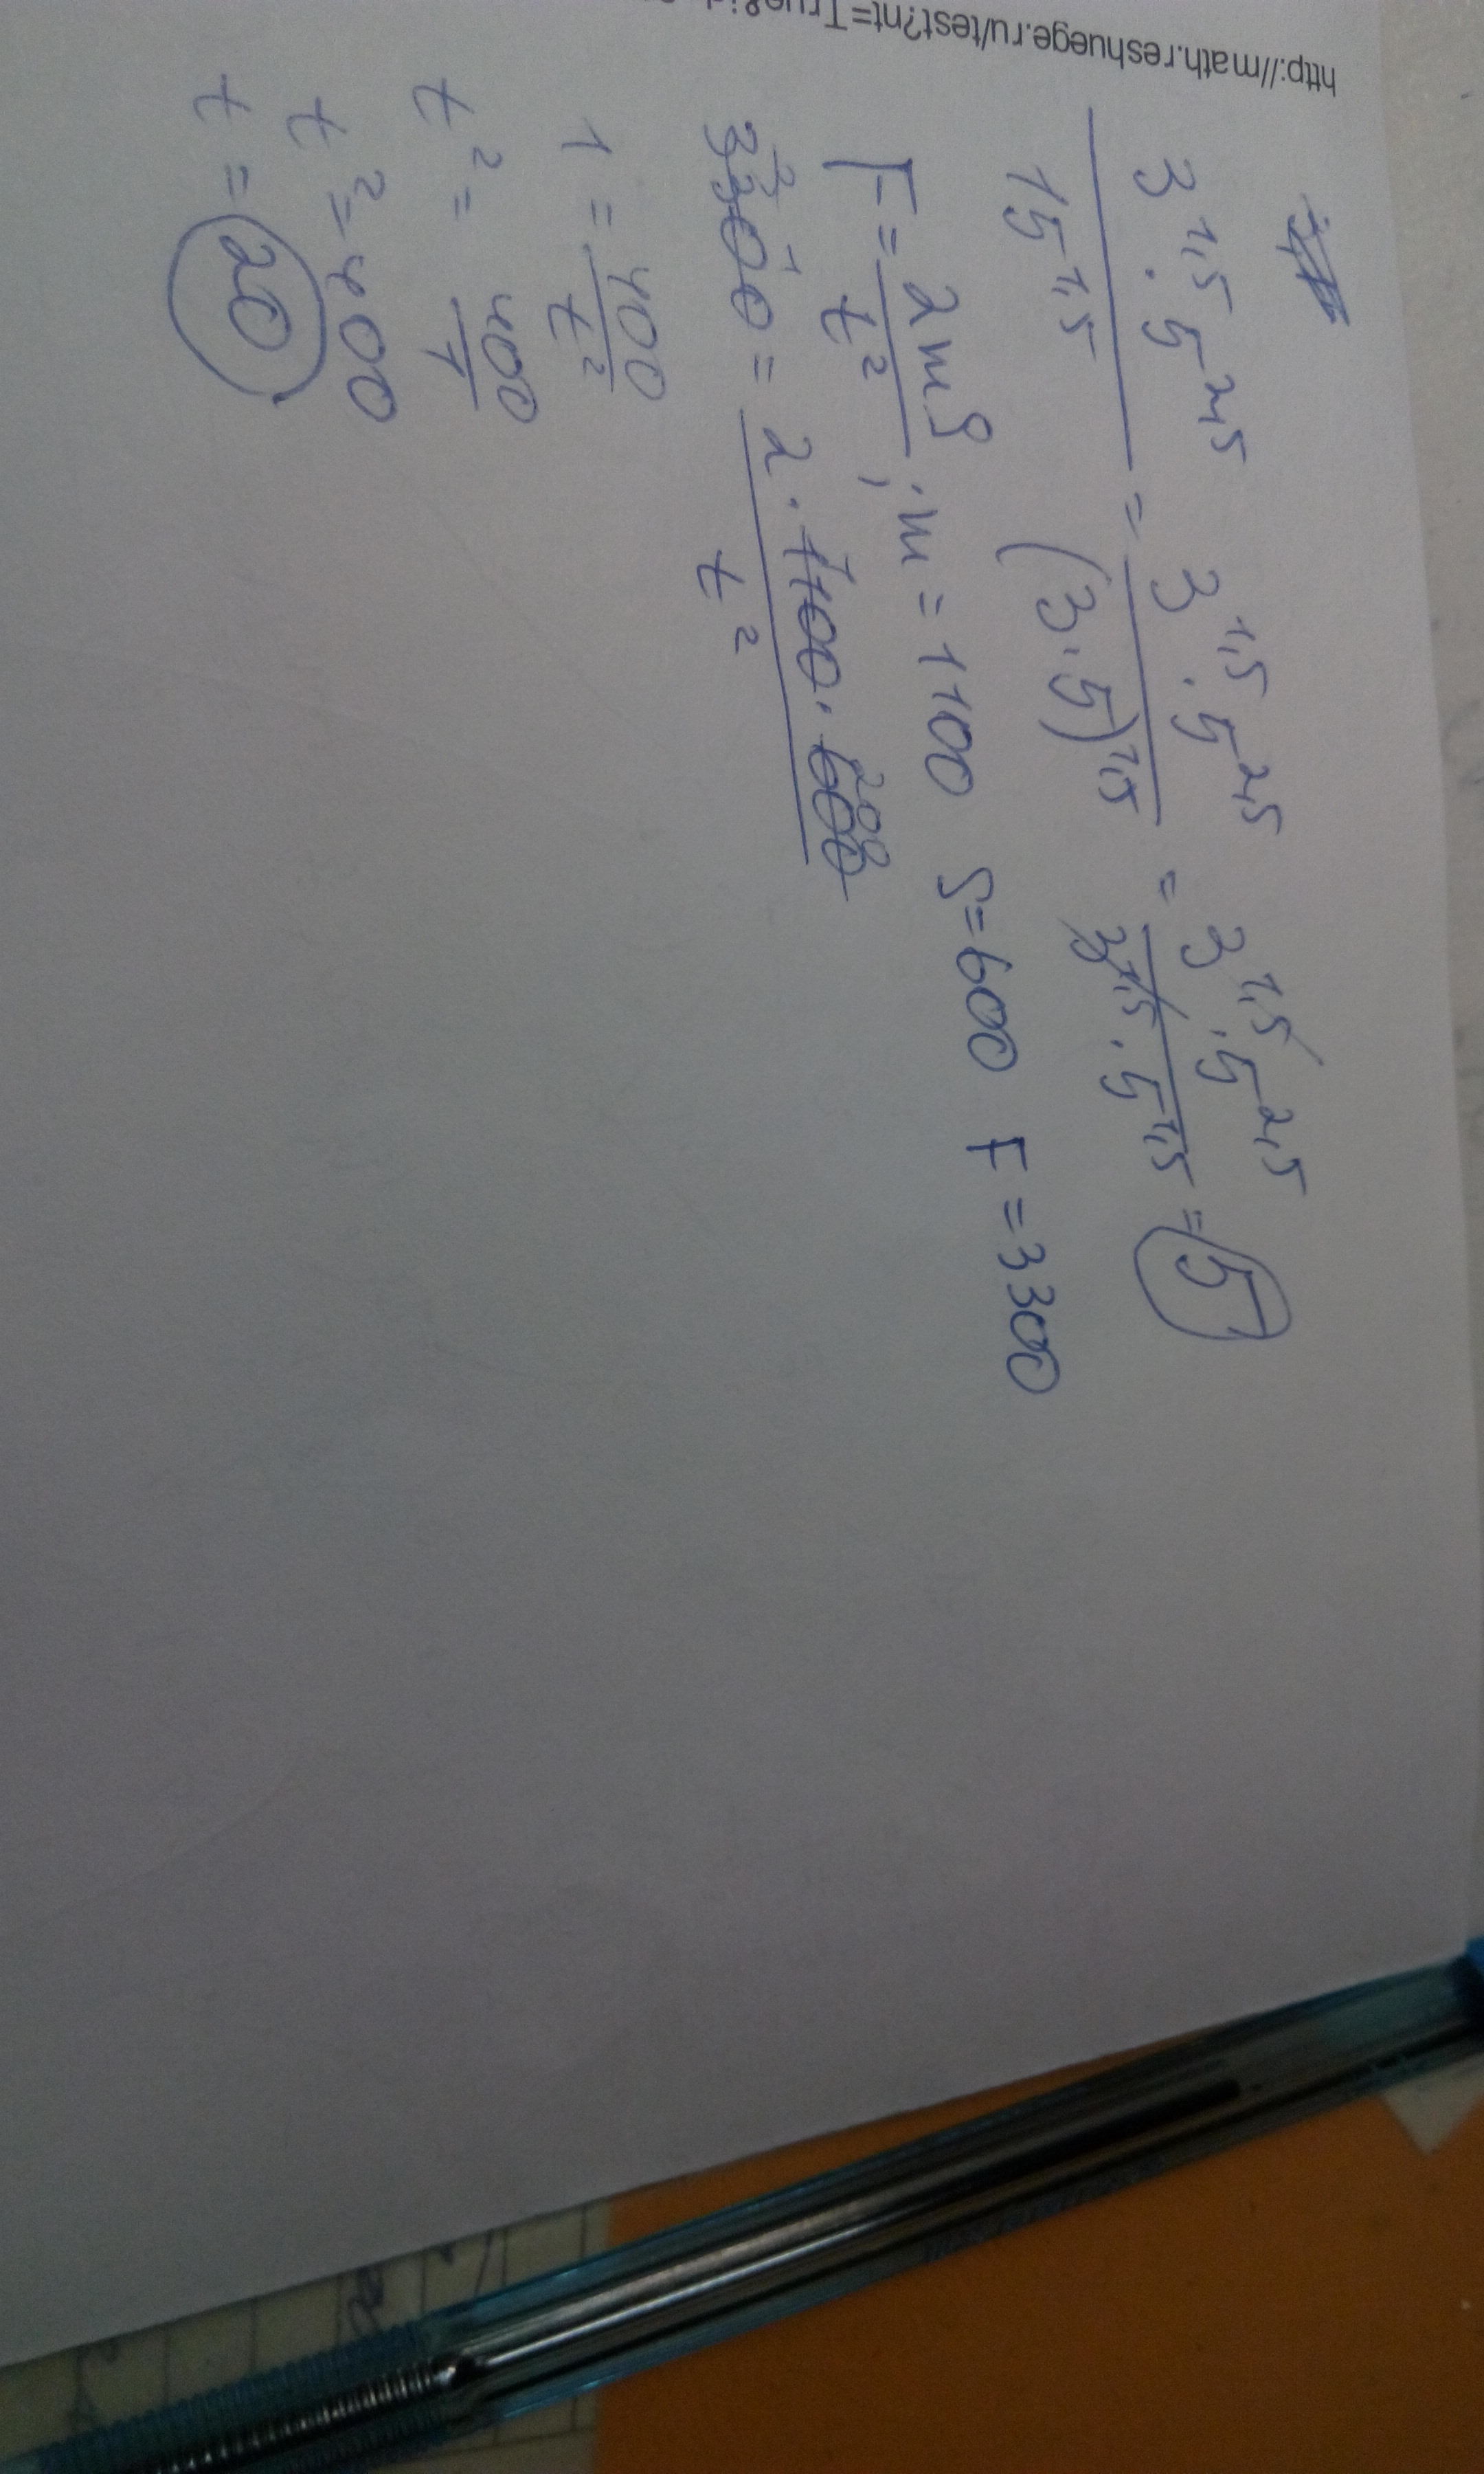 http://math.reshuege.ru/test?nt=True&id
3^1,5 · 5^2,5 / 15^1,5 = 3^1,5 · 5^2,5 / (3·5)^1,5 = 3^1,5 · 5^2,5 / 3^1,5 · 5^1,5 = 5
F = 2mS / t² ; m = 1100 S=600 F = 3300
3300 = 2 · 1100 · 600 / t²
3 1 1 200
1 = 400 / t²
t² = 400 / 1
t² = 400
t = 20